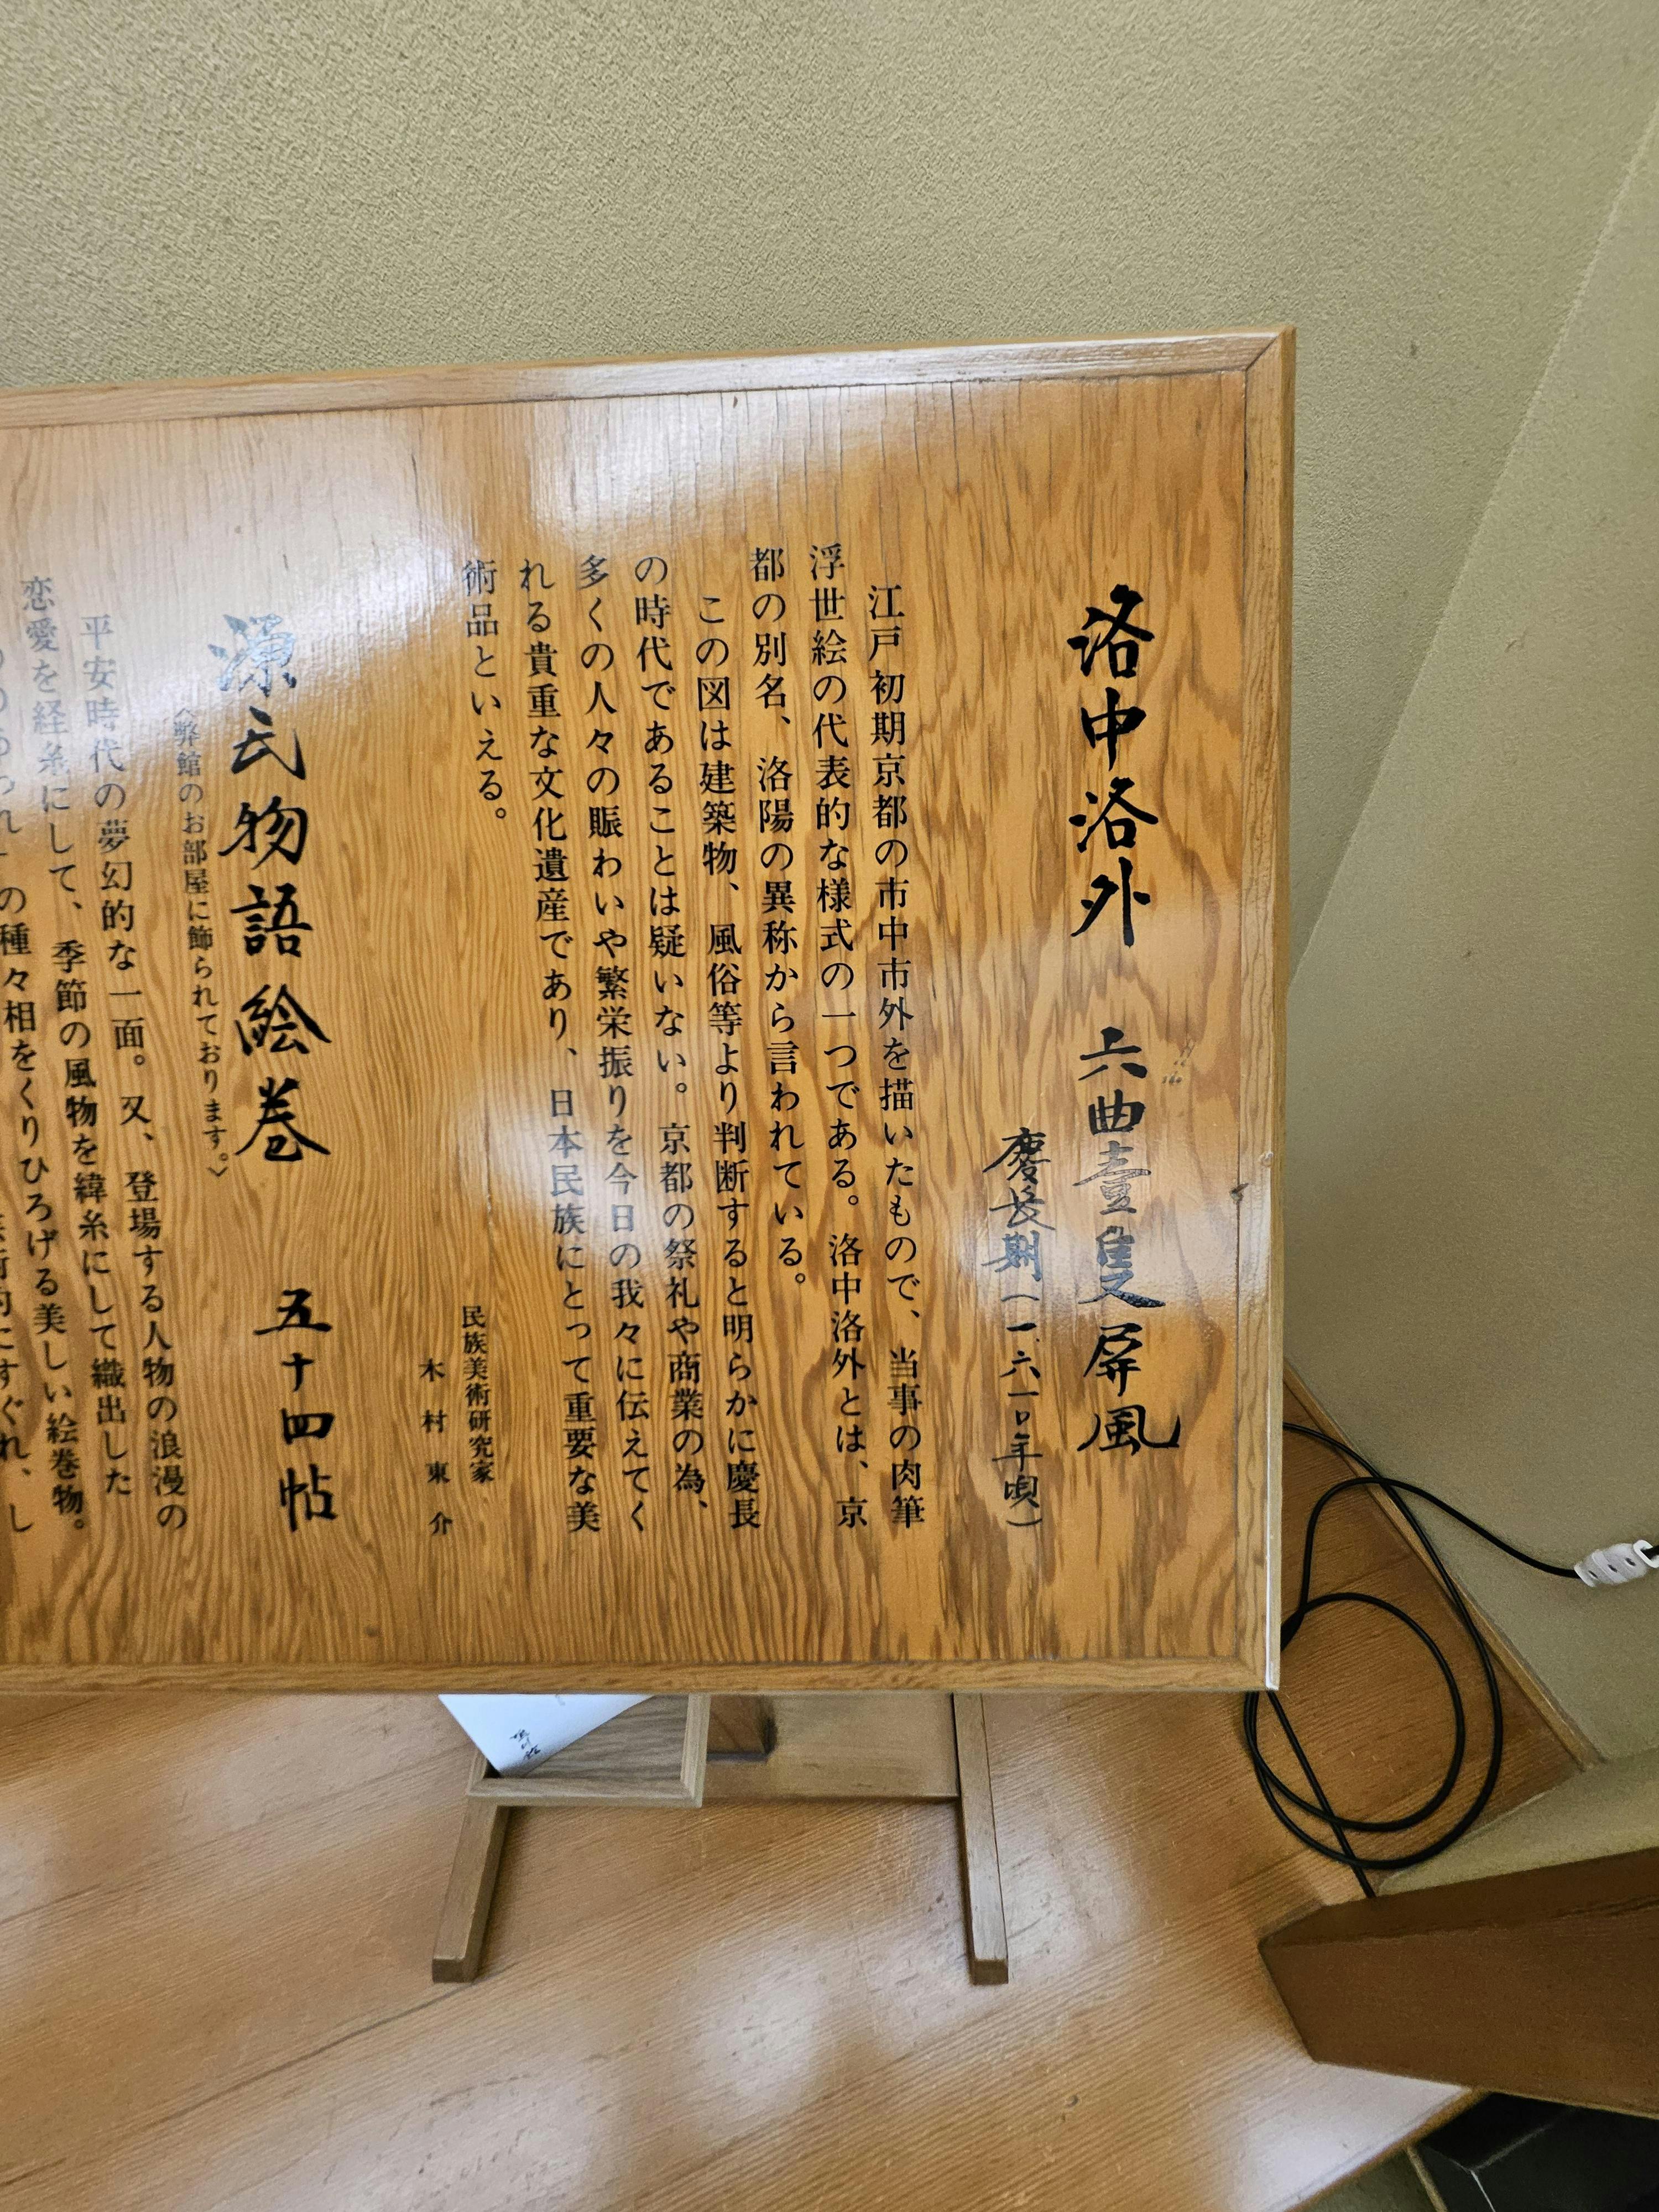 洛中洛外 六曲壹隻屏風
慶長期(一、六一〇年唄)
江戸初期京都の市中市外を描いたもので、当事の肉筆
浮世絵の代表的な様式の一つである。洛中洛外とは、京
都の別名、洛陽の異称から言われている。
この図は建築物、風俗等より判断すると明らかに慶長
の時代であることは疑いない。京都の祭礼や商業の為、
多くの人々の賑わいや繁栄振りを今日の我々に伝えてく
れる貴重な文化遺産であり、日本民族にとって重要な美
術品といえる。
民族美術研究家
木村東介
源氏物語絵巻 五十四帖
〈弊館のお部屋に飾られております。〉
平安時代の夢幻的な一面。又、登場する人物の浪漫の
恋愛を経糸にして、季節の風物を緯糸にして織出した
の種々相をくりひろげる美しい絵巻物。